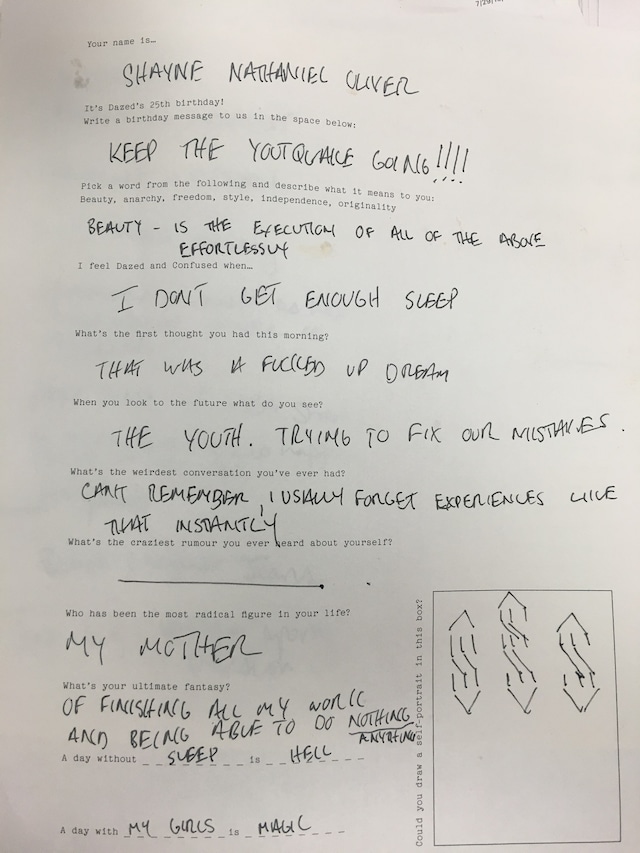 7/29/
Your name is…
SHAYNE NATHANIEL OLIVER
It's Dazed's 25th birthday!
Write a birthday message to us in the space below:
KEEP THE YOUTQUAKE GOING!!!!
Pick a word from the following and describe what it means to you:
Beauty, anarchy, freedom, style, independence, originality
BEAUTY - IS THE EXECUTION OF ALL OF THE ABOVE
EFFORTLESSLY
I feel Dazed and Confused when…
I DONT GET ENOUGH SLEEP
What's the first thought you had this morning?
THAT WAS A FUCKED UP DREAM
When you look to the future what do you see?
THE YOUTH. TRYING TO FIX OUR MISTAKES.
What's the weirdest conversation you've ever had?
CANT REMEMBER, I USUALLY FORGET EXPERIENCES LIKE
THAT INSTANTLY
What's the craziest rumour you ever heard about yourself?
Who has been the most radical figure in your life?
MY MOTHER
What's your ultimate fantasy?
OF FINISHING ALL MY WORK
AND BEING ABLE TO DO NOTHING
ANYTHING
A day without SLEEP is HELL
A day with MY GIRLS is MAGIC
Could you draw a self-portrait in this box?